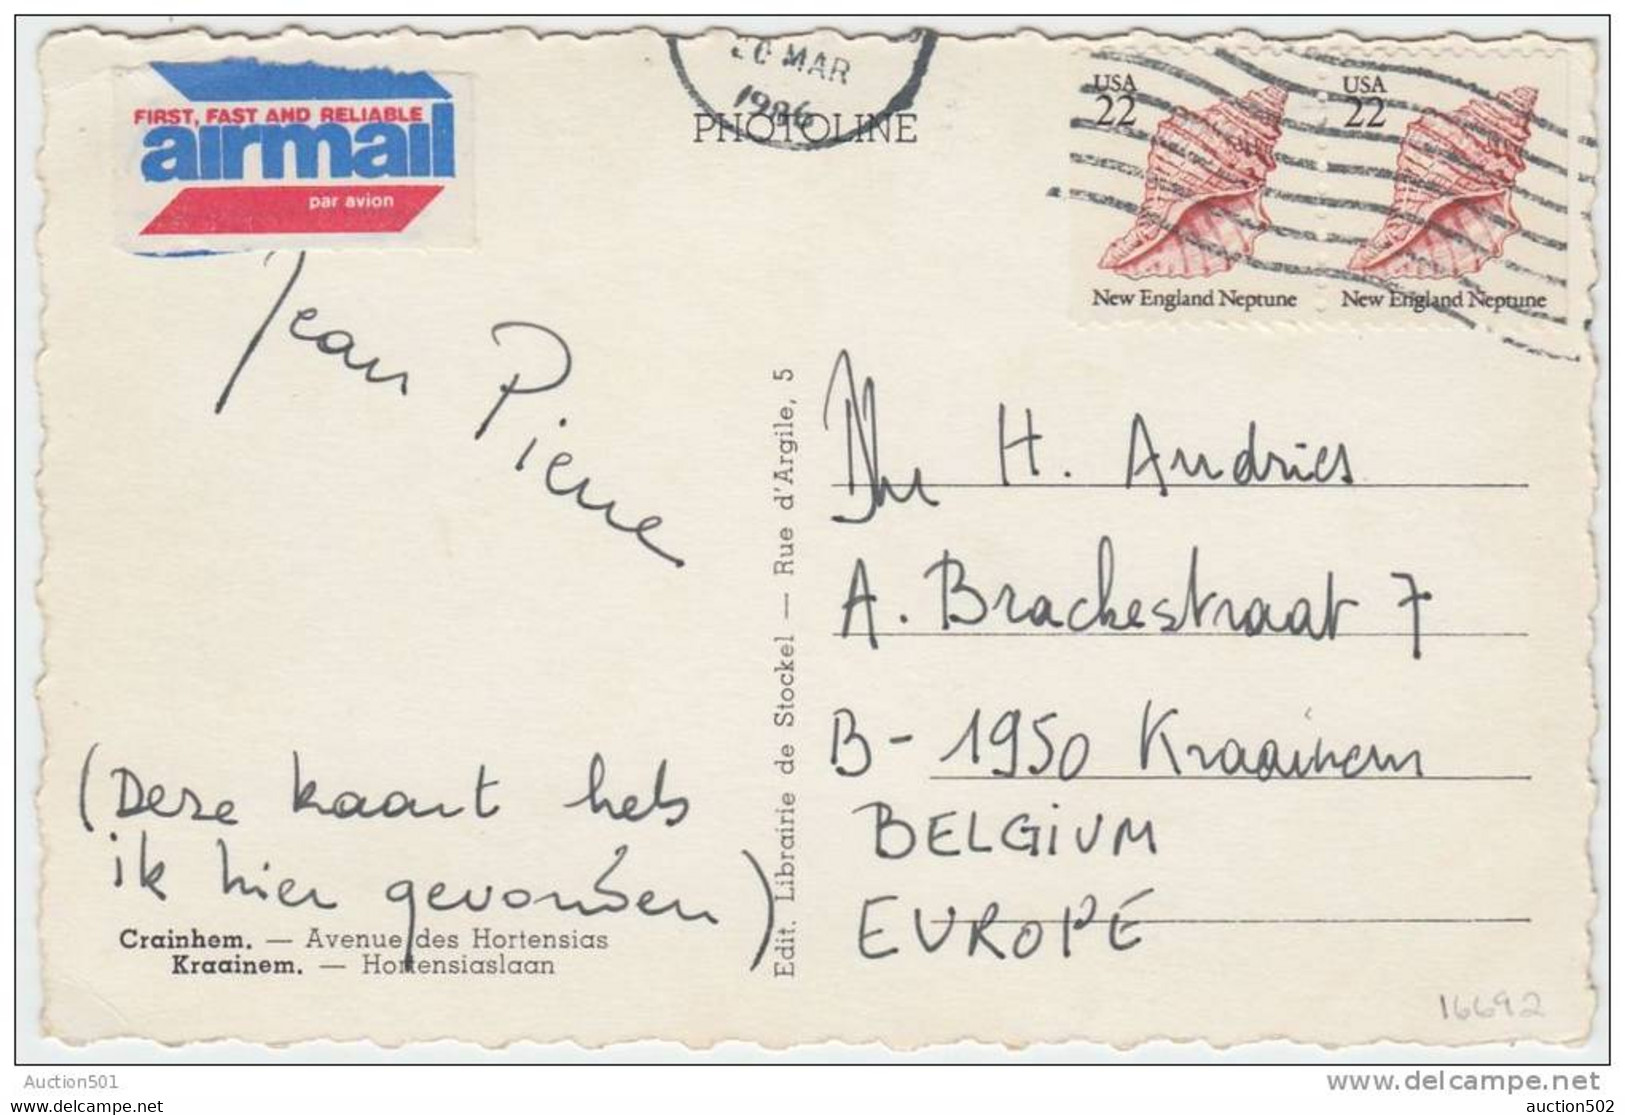 FIRST, FAST AND RELIABLE
airmail
par avion
MAR
1986
PHOTOLINE
USA
22
New England Neptune
USA
22
New England Neptune
Jean Pierre
Edit. Librairie de Stockel — Rue d'Argile, 5
Dhr H. Andries
A. Brackestraat 7
B-1950 Kraainem
BELGIUM
EUROPE
(Deze kaart heb
ik hier gevonden)
Crainhem. — Avenue des Hortensias
Kraainem. — Hortensiaslaan
16692
Auction501
www.delcampe.net
auction502
auction502